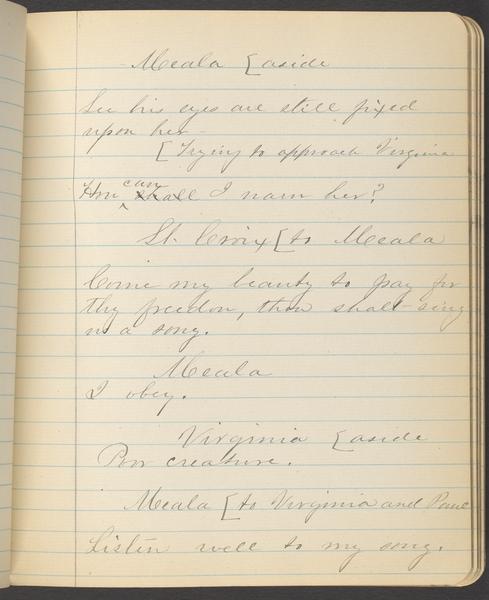 Meala [aside
See his eyes are still fixed
upon her -
[Trying to approach Virginia
How can shall I warn her?
St. Croix [to Meala
Come my beauty to pay for
thy freedom, thou shalt sing
us a song.
Meala
I obey.
Virginia [aside
Poor creature.
Meala [to Virginia and Paul
Listen well to my song.